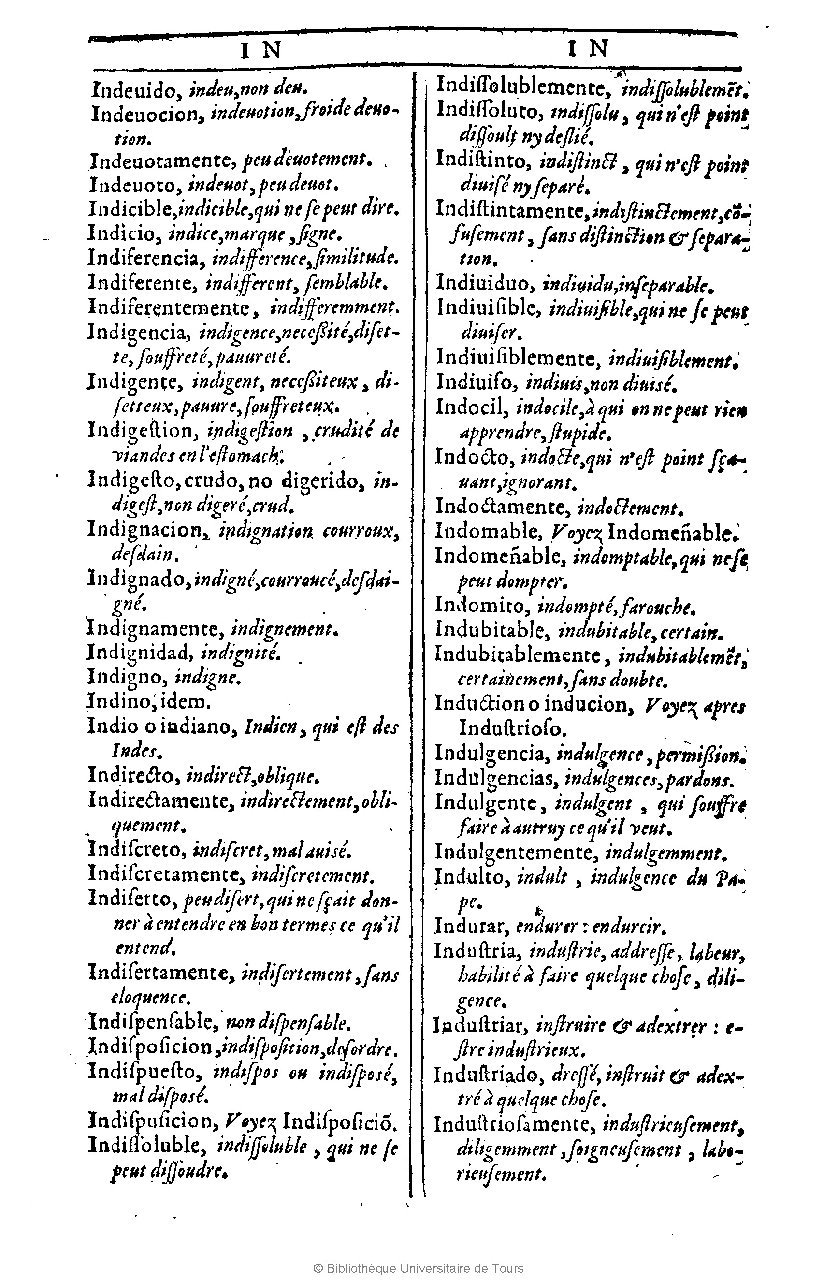 I N
Indeuido, indeu, non deu.
Indeuocion, indeuotion, froide deuo-
tion.
Indeuotamente, peu deuotement.
Indeuoto, indeuot, peu deuot.
Indicible, indicible, qui ne se peut dire.
Indicio, indice, marque, signe.
Indiferencia, indifference, similitude.
Indiferente, indifferent, semblable.
Indiferentemente, indifferemment.
Indigencia, indigence, necessité, diset-
te, souffreté, pauureté.
Indigente, indigent, necessiteux, di-
setteux, pauure, souffreteux.
Indigestion, indigestion, crudité de
viandes en l'estomach.
Indigesto, crudo, no digerido, in-
digest, non digeré, crud.
Indignacion, indignation courroux,
desdain.
Indignado, indigné, courroucé, desdai-
gné.
Indignamente, indignement.
Indignidad, indignité.
Indigno, indigne.
Indino, idem.
Indio o indiano, Indien, qui est des
Indes.
Indirecto, indirect, oblique.
Indirectamente, indirectement, obli-
quement.
Indiscreto, indiscret, mal auisé.
Indiscretamente, indiscretement.
Indiserto, peu disert, qui ne sçait don-
ner à entendre en bon termes ce qu'il
entend.
Indisertamente, indisertement, sans
eloquence.
Indispensable, non dispensable.
Indisposicion, indisposition, desordre.
Indispuesto, indispos ou indisposé,
mal disposé.
Indispusicion, Voyez Indisposiciõ.
Indissoluble, indissoluble, qui ne se
peut dissoudre.
I N
Indissolublemente, indissolublemẽt.
Indissoluto, indissolu, qui n'est point
dissoult ny deslié.
Indistinto, indistinct, qui n'est point
diuisé ny separé.
Indistintamente, indistinctement, cõ-
fusement, sans distinction & separa-
tion.
Indiuiduo, indiuidu, inseparable.
Indiuisible, indiuisible, qui ne se peut
diuiser.
Indiuisiblemente, indiuisiblement.
Indiuiso, indiuis, non diuisé.
Indocil, indocile, à qui on ne peut rien
apprendre, stupide.
Indocto, indocte, qui n'est point sça-
uant, ignorant.
Indoctamente, indoctement.
Indomable, Voyez Indomeñable.
Indomeñable, indomptable, qui ne se
peut dompter.
Indomito, indompté, farouche.
Indubitable, indubitable, certain.
Indubitablemente, indubitablemẽt,
certainement, sans doubte.
Induction o inducion, Voyez apres
Industrioso.
Indulgencia, indulgence, permission.
Indulgencias, indulgences, pardons.
Indulgente, indulgent, qui souffre
faire à autruy ce qu'il veut.
Indulgentemente, indulgemment.
Indulto, indult, indulgence du Pa-
pe.
Indurar, endurer : endurcir.
Industria, industrie, addresse, labeur,
habilité à faire quelque chose, dili-
gence.
Industriar, instruire & adextrer : e-
stre industrieux.
Industriado, dressé, instruit & adex-
tré à quelque chose.
Industriosamente, industrieusement,
diligemment, soigneusement, labo-
rieusement.
© Bibliothèque Universitaire de Tours